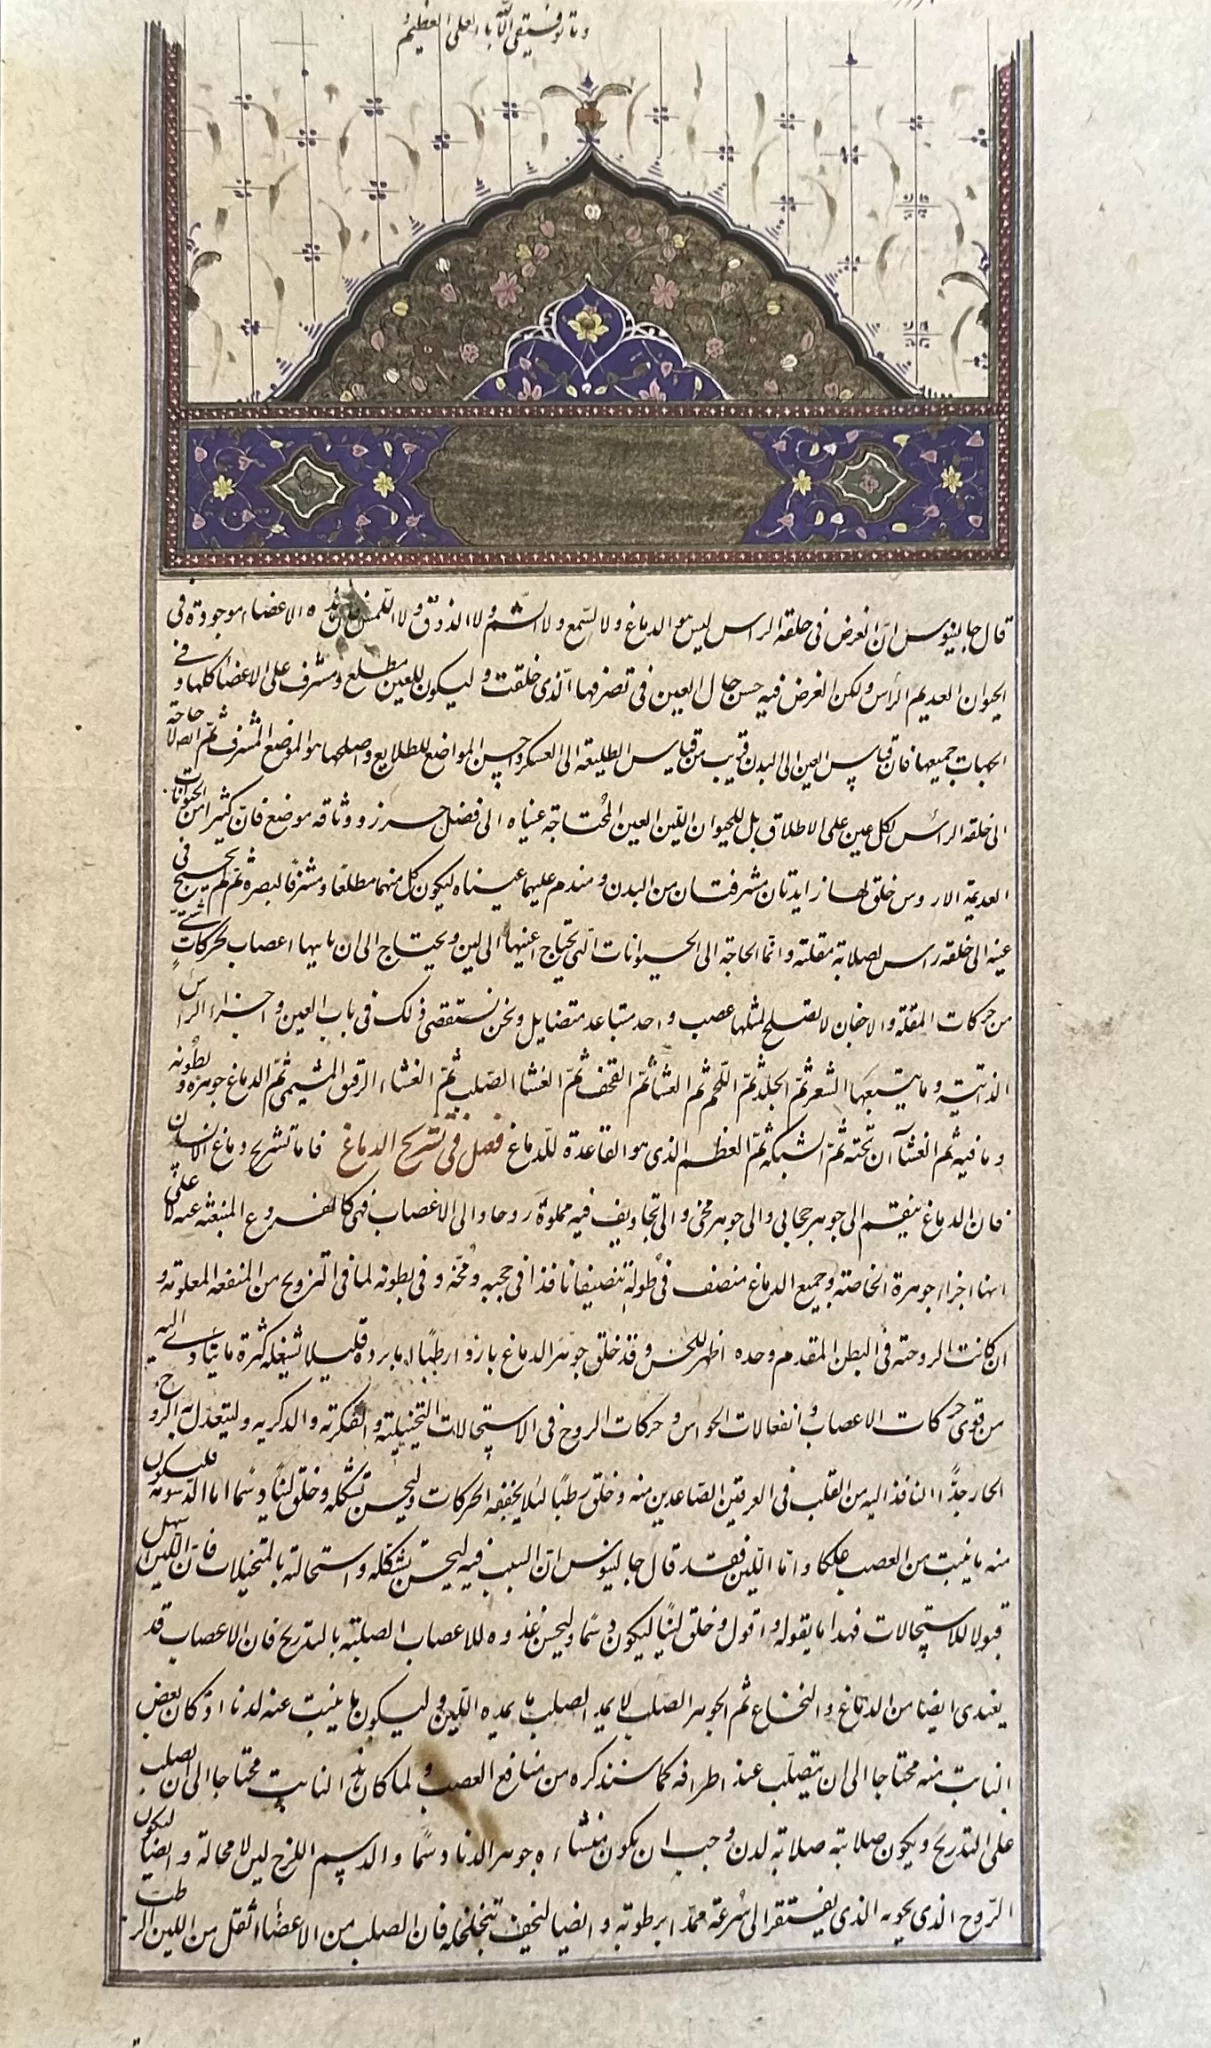 وما توفيقي الا بالله العلي العظيم
قال جالينوس ان الغرض في خلقة الراس ليس هو الدماغ ولا السمع ولا الشم ولا الذوق ولا اللمس فان هذه الاعضاء موجودة في
الحيوان العديم الراس ولكن الغرض فيه حسن حال العين في تصرفها الذي خلقت له وليكون للعين مطلع ومشرف على الاعضا كلها في
الجهات جميعها فان قياس العين الى البدن قريب من قياس الطليعة الى العسكر واحسن المواضع للطلايع واصلحها هو الموضع المشرف ثم لا حاجة
الى خلقة الرأس لكل عين على الاطلاق بل للحيوان اللين العين المحتاجة عيناه الى فضل حرز ووثاقة موضع فان كثيرا من الحيوانات
العديمة الاروس خلق لها زايدتان مشرفتان من البدن وهندم عليهما عيناه ليكون كل منهما مطلعا ومشرفا لبصره ثم لم يحتج في
عينه الى خلقه راس لصلابة مقلته وانما الحاجة الى الحيوانات التي يحتاج اعينها الى لين ويحتاج الى ان ياتيها اعصاب لحركات شتى
من حركات المقلة والاجفان لا تصلح لمثلها عصب واحد متباعد متضايل ونحن نستقصي ذلك في باب العين واجزاء الراس
الذاتية وما يتبعها الشعر ثم الجلد ثم اللحم ثم الغشا ثم القحف ثم الغشا الصلب ثم الغشاء الرقيق المشيمي ثم الدماغ جوهره وبطونه
وما فيه ثم الغشاآن تحته ثم الشبكة ثم العظم الذي هو القاعدة للدماغ فصل في تشريح الدماغ فاما تشريح دماغ الانسان
فان الدماغ ينقسم الى جوهر حجابي والى جوهر مخي والى تجاويف فيه مملوة روحا والى الاعصاب فهي كالفروع المنبعثة عنه لا على
انها اجزاء جوهرة الخاصة وجميع الدماغ منصف في طوله تنصيفا نافذا في حجبه ومخه وفي بطونه لما في التزويج من المنفعة المعلومة و
ان كانت الزوجية في البطن المقدم وحده اظهر للحس وقد خلق جوهر الدماغ باردا رطبا اما برده فليلا تشغله كثرة ما يتادى اليه
من قوى حركات الاعصاب وانفعالات الحواس وحركات الروح في الاستحالات التخيلية والفكرية والذكرية وليتعدل به الروح
الحار جدًا النافذ اليه من القلب في العرقين الصاعدين منه وخلق رطبًا ليلا يجففه الحركات وليحسن تشكله وخلق لينًا ودسمًا اما الدسومة فليكون
منه ما ينبت من العصب علكا واما اللين فقد قال جالينوس ان السبب فيه ليحسن تشكله واستحالته بالمتخيلات فان اللين اسهل
قبولا للاستحالات فهذا ما يقوله واقول وخلق لينًا ليكون دسمًا وليحسن غذوه للاعصاب الصلبة بالتدريج فان الاعصاب قد
يغتدى ايضا من الدماغ والنخاع ثم الجوهر الصلب لا يمد الصلب ما يمده اللين وليكون ما ينبت عنه لدنا اذ كان بعض
النابت منه محتاجا الى ان يتصلب عند اطرافه كما سنذكره من منافع العصب ولما كان هذا النابت محتاجا الى ان تصلب
على التدريج ويكون صلابته صلابة لدن وجب ان يكون منشاءه جوهر الدنا دسمًا والدسم اللزج لين لا محالة وايضا ليكون
الروح الذي يحويه الذي يفتقر الى سرعة ممدا برطوبة وايضا ليخف تتخلخله فان الصلب من الاعضاء اثقل من اللين الرطب